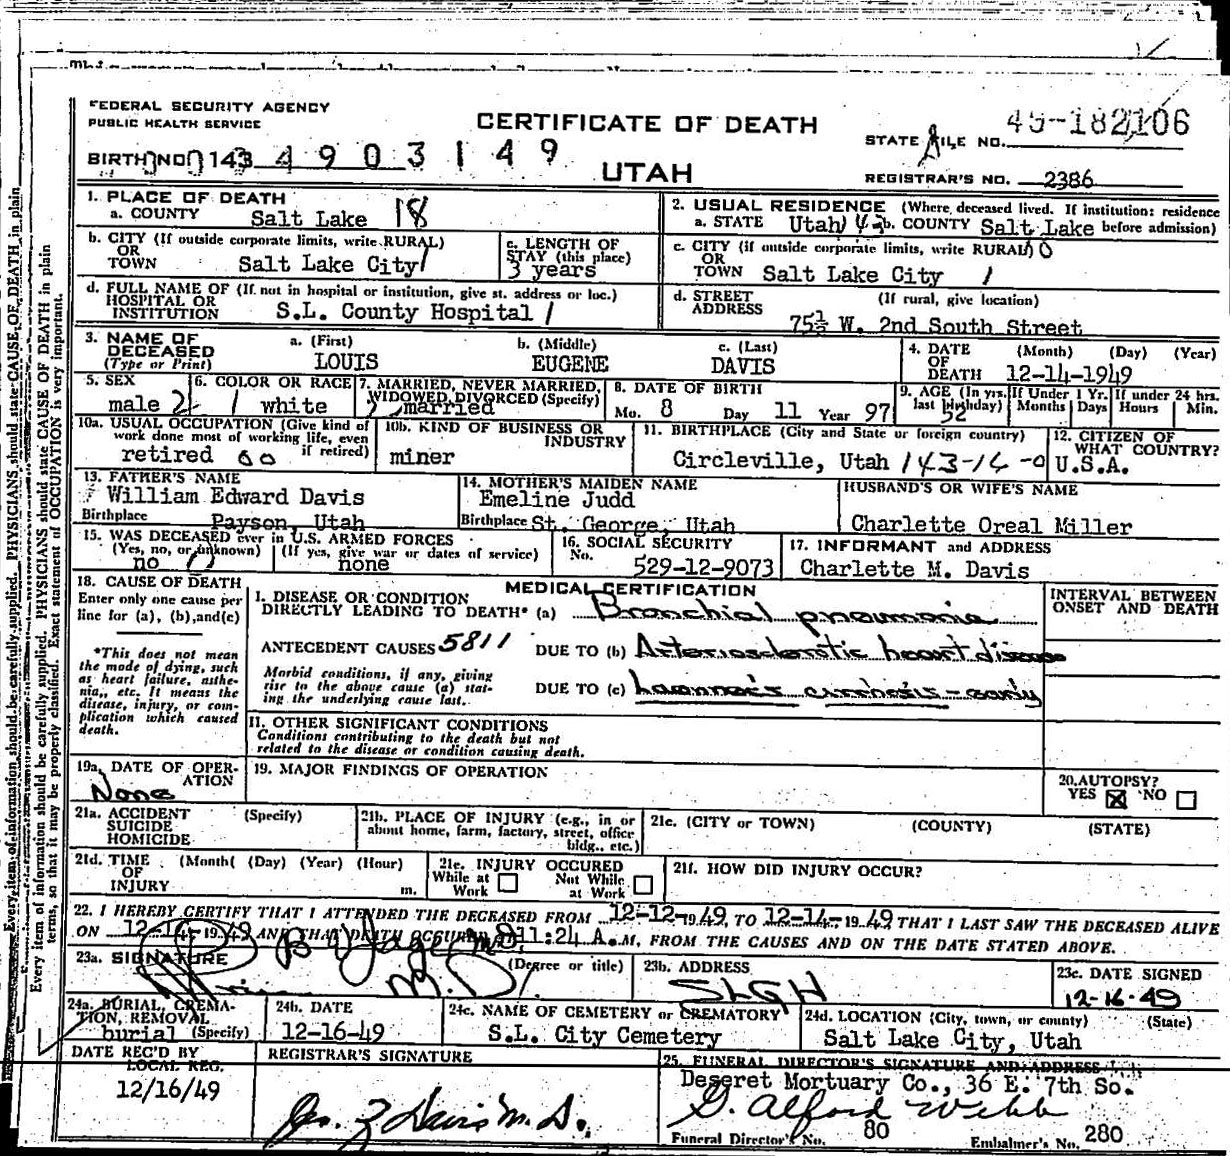 FEDERAL SECURITY AGENCY
PUBLIC HEALTH SERVICE
CERTIFICATE OF DEATH
UTAH
STATE FILE NO. 49-182106
BIRTH NO. 143 4903149
REGISTRAR'S NO. 2386
1. PLACE OF DEATH
a. COUNTY Salt Lake 18
2. USUAL RESIDENCE (Where deceased lived. If institution: residence before admission)
a. STATE Utah b. COUNTY Salt Lake
b. CITY (If outside corporate limits, write RURAL) OR TOWN Salt Lake City
c. LENGTH OF STAY (this place) 3 years
c. CITY (if outside corporate limits, write RURAL) OR TOWN Salt Lake City
d. FULL NAME OF (If not in hospital or institution, give st. address or loc.) HOSPITAL OR INSTITUTION S.L. County Hospital
d. STREET ADDRESS (If rural, give location) 75½ W. 2nd South Street
3. NAME OF DECEASED (Type or Print)
a. (First) LOUIS b. (Middle) EUGENE c. (Last) DAVIS
4. DATE OF DEATH (Month) (Day) (Year) 12-14-1949
5. SEX male 2
6. COLOR OR RACE 1 white
7. MARRIED, NEVER MARRIED, WIDOWED, DIVORCED (Specify) married
8. DATE OF BIRTH Mo. 8 Day 11 Year 97
9. AGE (In yrs. last birthday) 52
If Under 1 Yr. Months Days
If under 24 hrs. Hours Min.
10a. USUAL OCCUPATION (Give kind of work done most of working life, even if retired) retired
10b. KIND OF BUSINESS OR INDUSTRY miner
11. BIRTHPLACE (City and State or foreign country) Circleville, Utah 143-14-0
12. CITIZEN OF WHAT COUNTRY? U.S.A.
13. FATHER'S NAME William Edward Davis
Birthplace Payson, Utah
14. MOTHER'S MAIDEN NAME Emeline Judd
Birthplace St. George, Utah
HUSBAND'S OR WIFE'S NAME
Charlette Oreal Miller
15. WAS DECEASED ever in U.S. ARMED FORCES
(Yes, no, or unknown) no (If yes, give war or dates of service) none
16. SOCIAL SECURITY No. 529-12-9073
17. INFORMANT and ADDRESS
Charlette M. Davis
18. CAUSE OF DEATH
Enter only one cause per line for (a), (b), and (c)
*This does not mean the mode of dying, such as heart failure, asthenia, etc. It means the disease, injury, or complication which caused death.
MEDICAL CERTIFICATION
INTERVAL BETWEEN ONSET AND DEATH
I. DISEASE OR CONDITION DIRECTLY LEADING TO DEATH* (a) Bronchial pneumonia
ANTECEDENT CAUSES 5811 DUE TO (b) Arteriosclerotic heart disease
Morbid conditions, if any, giving rise to the above cause (a) stating the underlying cause last.
DUE TO (c) Laennec's cirrhosis - early
II. OTHER SIGNIFICANT CONDITIONS
Conditions contributing to the death but not related to the disease or condition causing death.
19a. DATE OF OPERATION None
19. MAJOR FINDINGS OF OPERATION
20. AUTOPSY? YES ☒ NO ☐
21a. ACCIDENT SUICIDE HOMICIDE (Specify)
21b. PLACE OF INJURY (e.g., in or about home, farm, factory, street, office bldg., etc.)
21c. (CITY or TOWN) (COUNTY) (STATE)
21d. TIME OF INJURY (Month) (Day) (Year) (Hour) m.
21e. INJURY OCCURED While at Work ☐ Not While at Work ☐
21f. HOW DID INJURY OCCUR?
22. I HEREBY CERTIFY THAT I ATTENDED THE DECEASED FROM 12-12-1949, TO 12-14-1949 THAT I LAST SAW THE DECEASED ALIVE
ON 12-14-1949 AND THAT DEATH OCCURED 11:24 A.M, FROM THE CAUSES AND ON THE DATE STATED ABOVE.
23a. SIGNATURE M.D. (Degree or title)
23b. ADDRESS SLGH
23c. DATE SIGNED 12-16-49
24a. BURIAL, CREMATION, REMOVAL (Specify) burial
24b. DATE 12-16-49
24c. NAME OF CEMETERY or CREMATORY S.L. City Cemetery
24d. LOCATION (City, town, or county) (State) Salt Lake City, Utah
DATE REC'D BY LOCAL REG. 12/16/49
REGISTRAR'S SIGNATURE
Davis M.D.
25. FUNERAL DIRECTOR'S SIGNATURE AND ADDRESS
Deseret Mortuary Co., 36 E. 7th So.
G. Alford Webb
Funeral Director's No. 80 Embalmer's No. 280
Every item of information should be carefully supplied. PHYSICIANS should state CAUSE OF DEATH in plain
terms, so that it may be properly classified. Exact statement of OCCUPATION is very important.